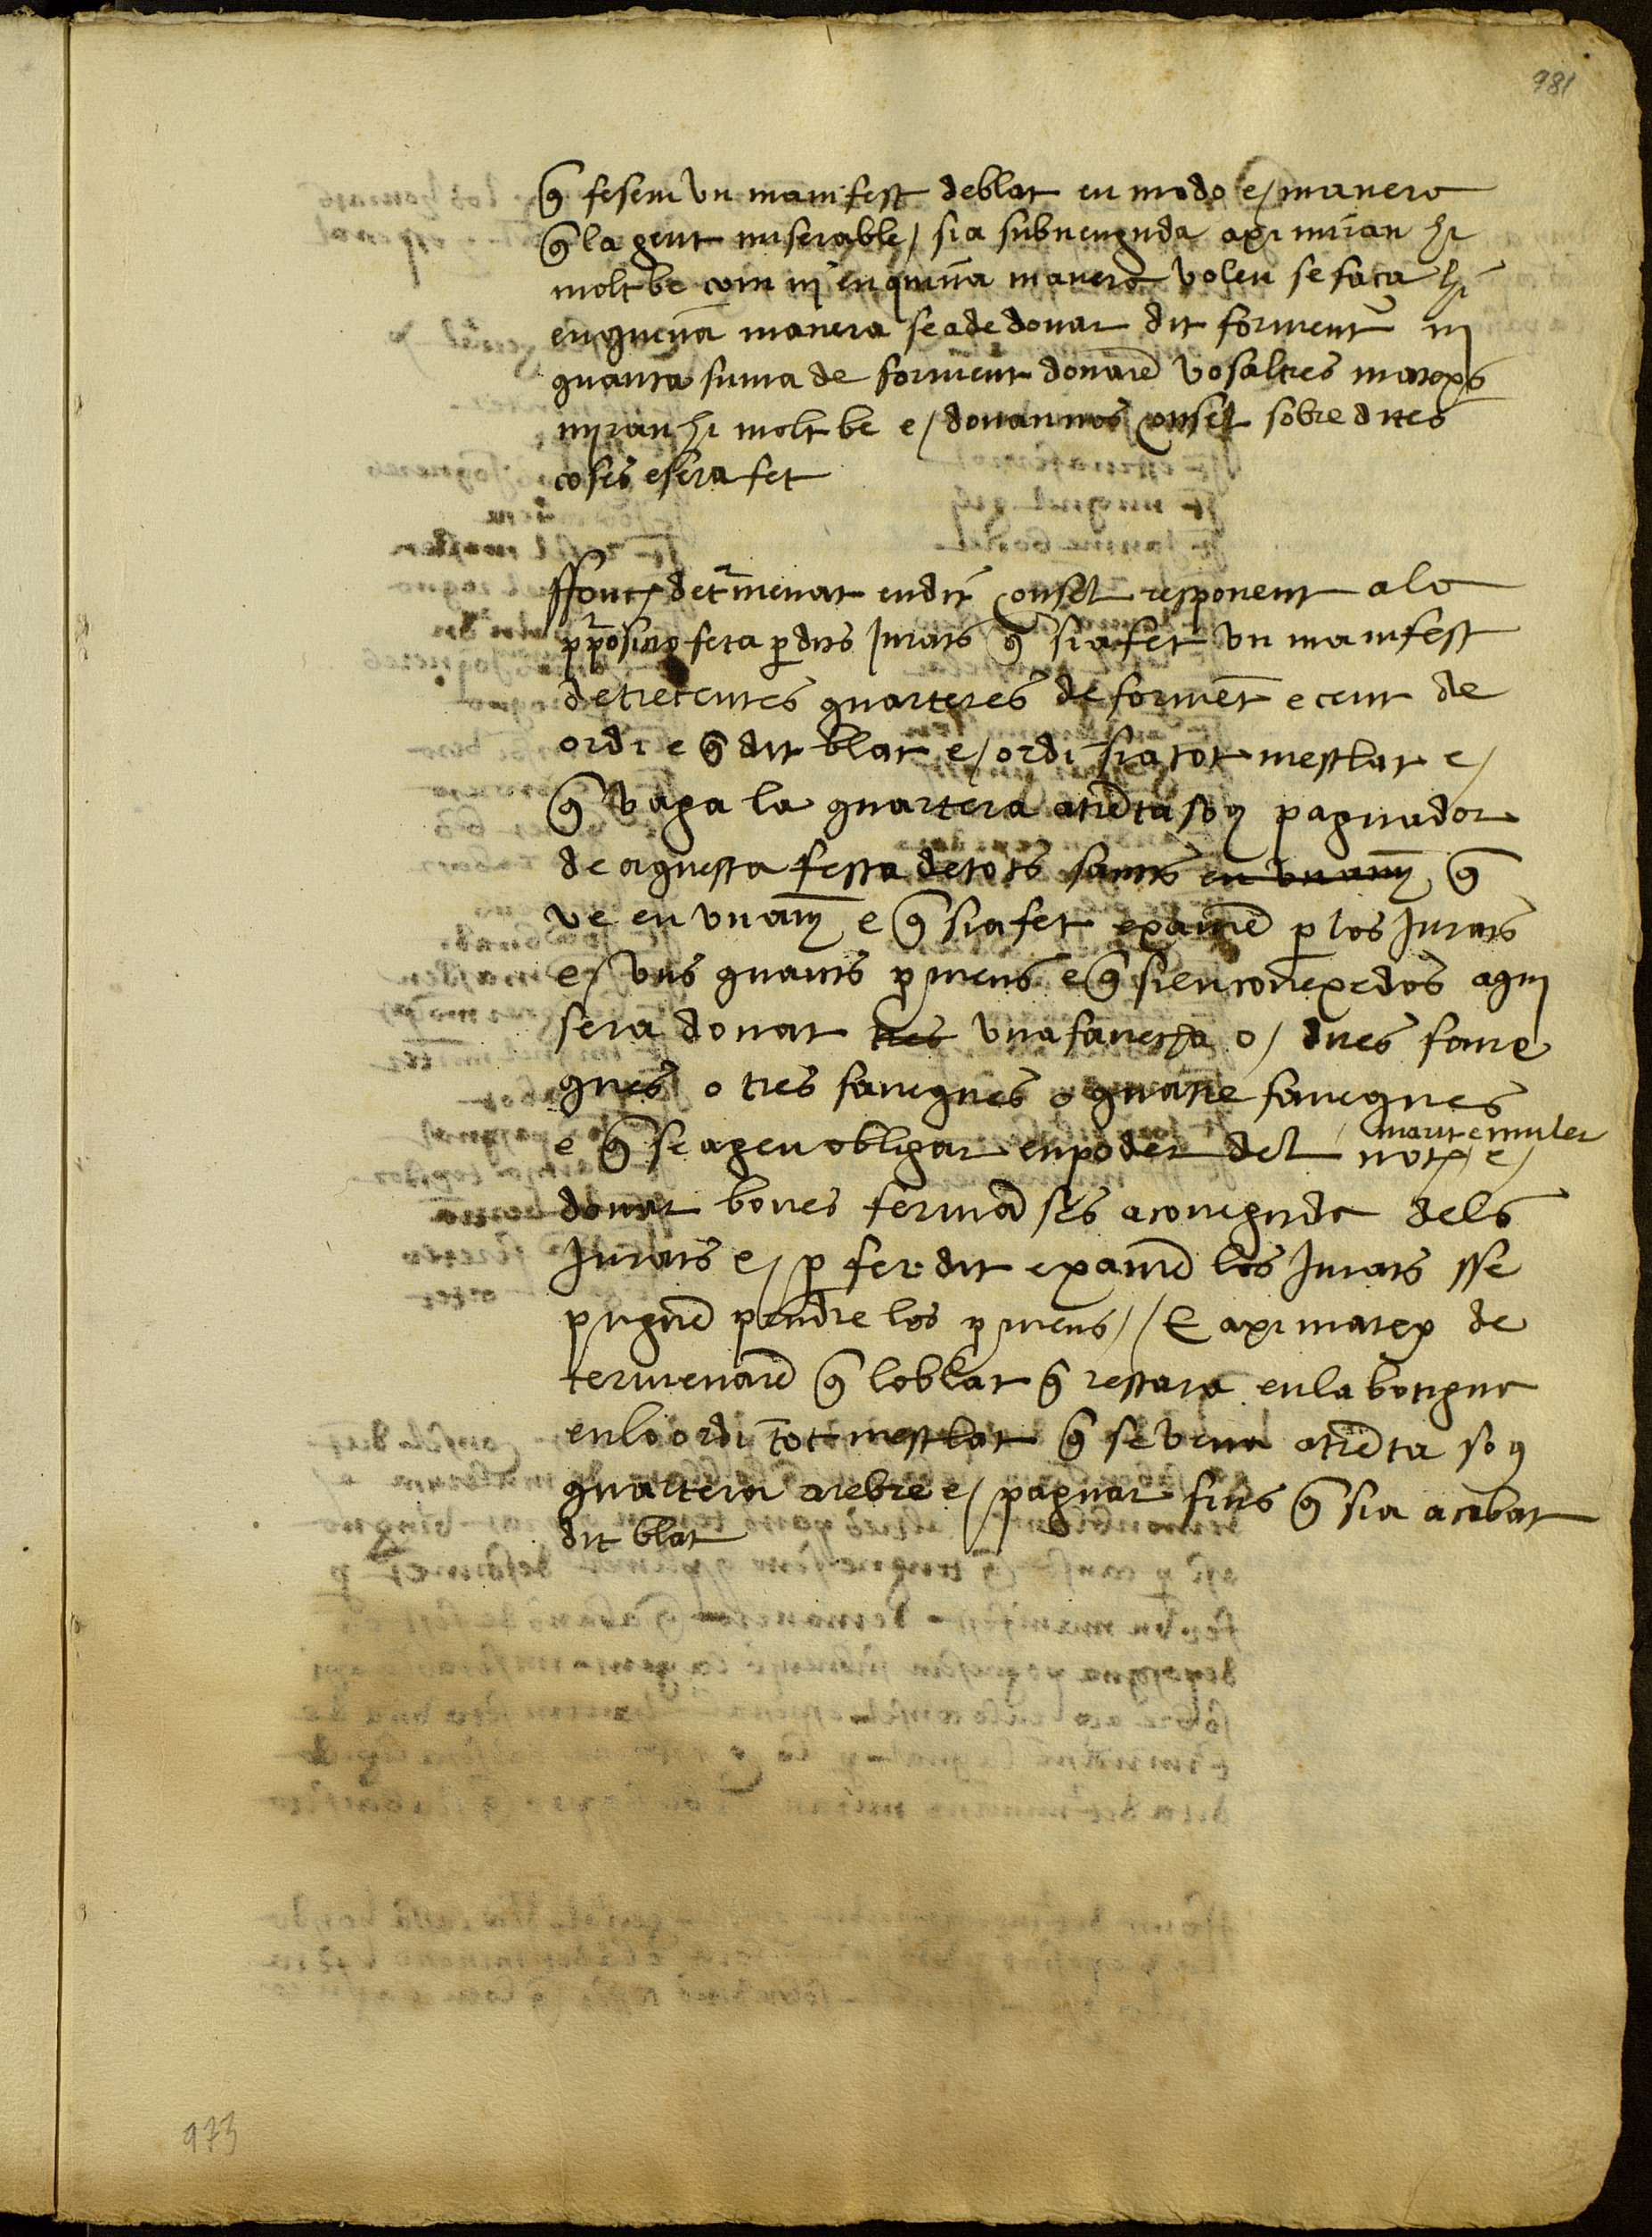 981
q̃ fesem vn manifest deblat en modo e/ manera
q̃ la gent miserable / sia subuenguda axi miran hi
molt be com ni en quina manera volen se faca hi
en quena manera se ade donar dit forment ni
quanta suma de forment donarẽ vosaltres matexs
miran hi molt be e/ donannos consel sobre dites
coses e sera fet
ffonch detʳmenat en dit consel responent a la
pʳposicio feta p dits Jurats q̃ sia fet vn manifest
de trecentes quarteres de formẽt e cent de
ordi e q̃ dit blat e/ ordi sia tot mesclat e/
q̃ vaga la quartera a trẽta sos paguador
de aquesta festa de tots sants en vn any q̃
ve en vn any e q̃ sia fet examẽ p los Jurats
e/ vns quants pmens e q̃ sien conexedos aqui
sera donat tres vna faneca o/ dues fane
gues o tres fanegues o quatre fanegues
marit e muler
e q̃ se agen obligar en poder del notʳ e/
donar bones fermãses a coneguda dels
Jurats e/ p fer dit examẽ los Jurats sse
puguẽ pendre los pmens // E axi matex de
termenarẽ q̃ lo blat q̃ restara en la botigua
en lo ordi tot mesclat q̃ se vena a trẽta sos
quartera arebre e/ paguar fins q̃ sia acabat
dit blat
973